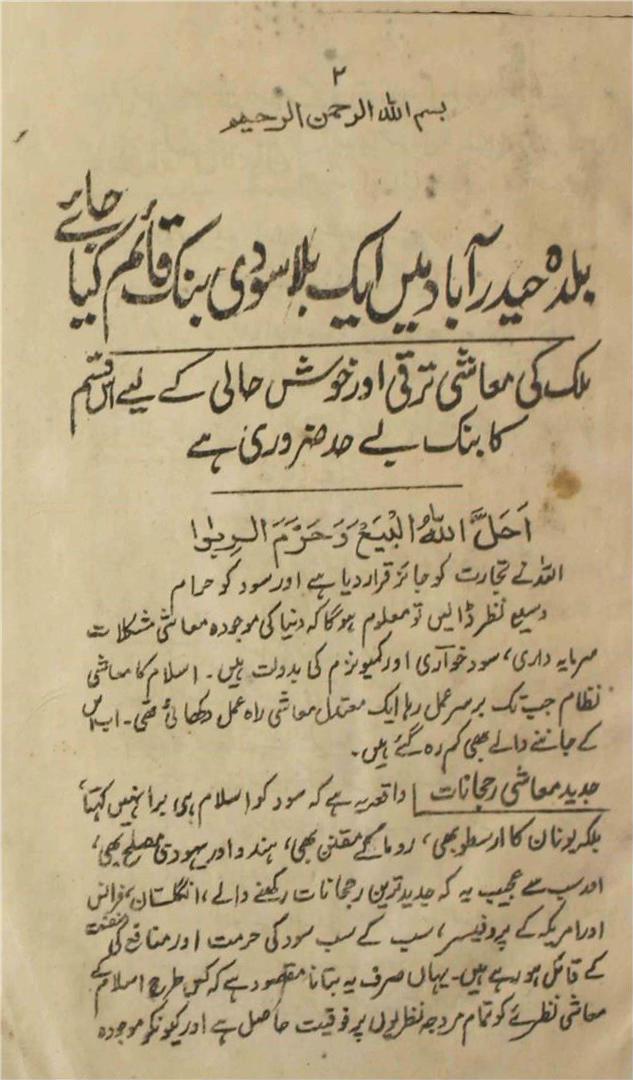 ۲
بسم اللہ الرحمن الرحیم
بلدہ حیدرآباد میں ایک بلا سودی بنک قائم کیا جائے
ملک کی معاشی ترقی اور خوش حالی کے لیے اس قسم
کا بنک بے حد ضروری ہے
اَحَلَّ اللّٰہُ الْبَیْعَ وَحَرَّمَ الرِبٰوا
اللہ نے تجارت کو جائز قرار دیا ہے اور سود کو حرام
وسیع نظر ڈالیں تو معلوم ہوگا کہ دنیا کی موجودہ معاشی مشکلات
سرمایہ داری، سود خواری اور کمیونزم کی بدولت ہیں۔ اسلام کا معاشی
نظام جب تک برسر عمل رہا ایک معتدل معاشی راہ عمل دکھائی تھی۔ اب اس
کے جاننے والے بھی کم رہ گئے ہیں۔
جدید معاشی رجحانات واقعہ یہ ہے کہ سود کو اسلام ہی برا نہیں کہتا
بلکہ یونان کا ارسطو بھی، روما کے مقنن بھی، ہندو اور یہودی مصلح بھی،
اور سب سے عجیب یہ کہ جدید ترین رجحانات رکھنے والے، انگلستان، فرانس
اور امریکہ کے پروفیسر، سب کے سب سود کی حرمت اور منافع کی منفعت
کے قائل ہو رہے ہیں۔ یہاں صرف یہ بتانا مقصود ہے کہ کس طرح اسلام کے
معاشی نظرئے کو تمام مروجہ نظریوں پر فوقیت حاصل ہے اور کیونکر موجودہ